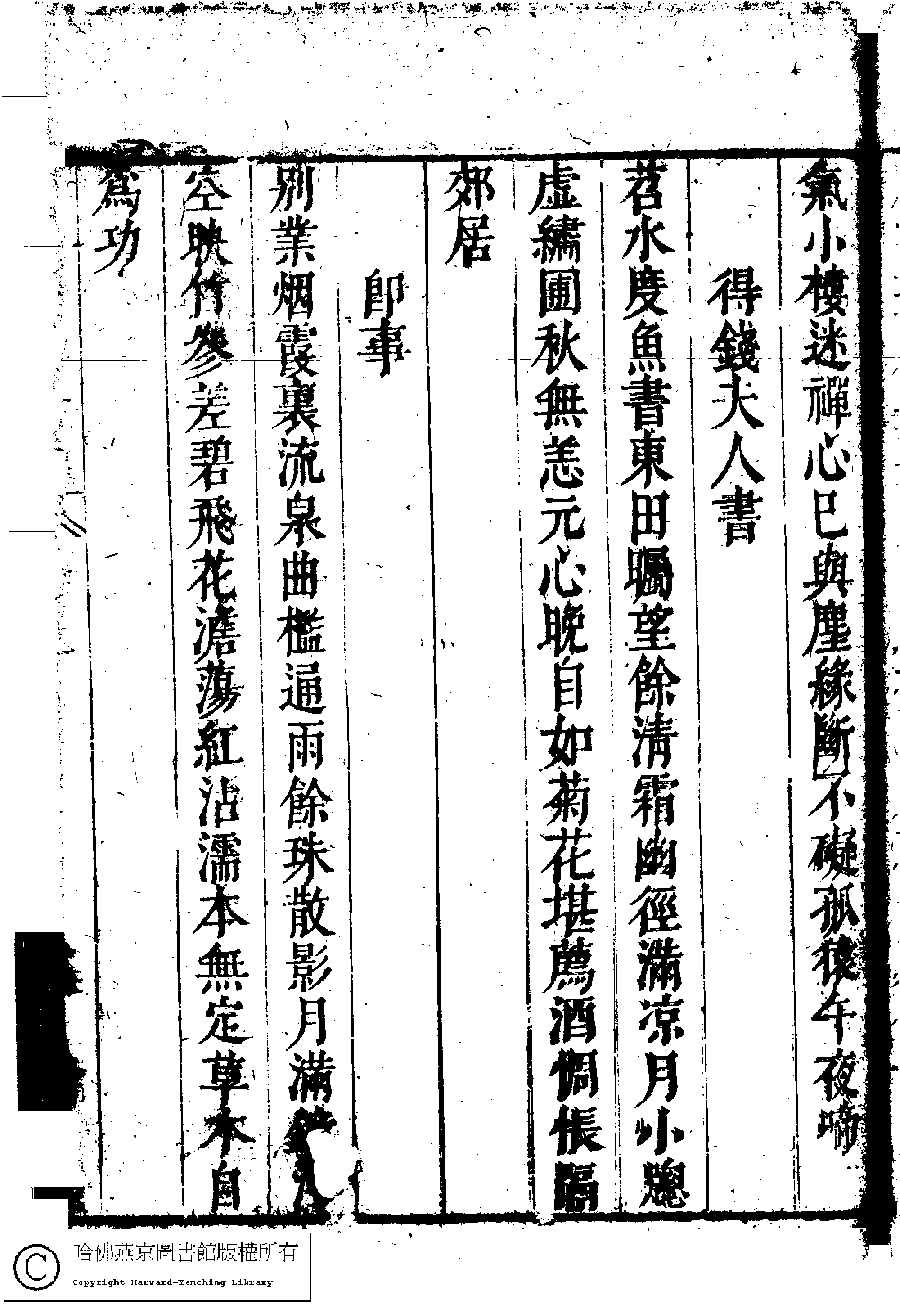 氣小樓迷禪心已與塵緣斷不礙孤猿午夜啼
得錢夫人書
苕水度魚書東田矚望餘清霜幽徑滿凉月小牕
虛繡圃秋無恙元心晚自如菊花堪薦酒惆悵隔
郊居
卽事
別業烟霞裏流泉曲檻通雨餘珠散影月滿
空映竹參差碧飛花澹蕩紅沾濡本無定草木自
爲功
哈佛燕京圖書館版權所有
Copyright Harvard-Yenching Library